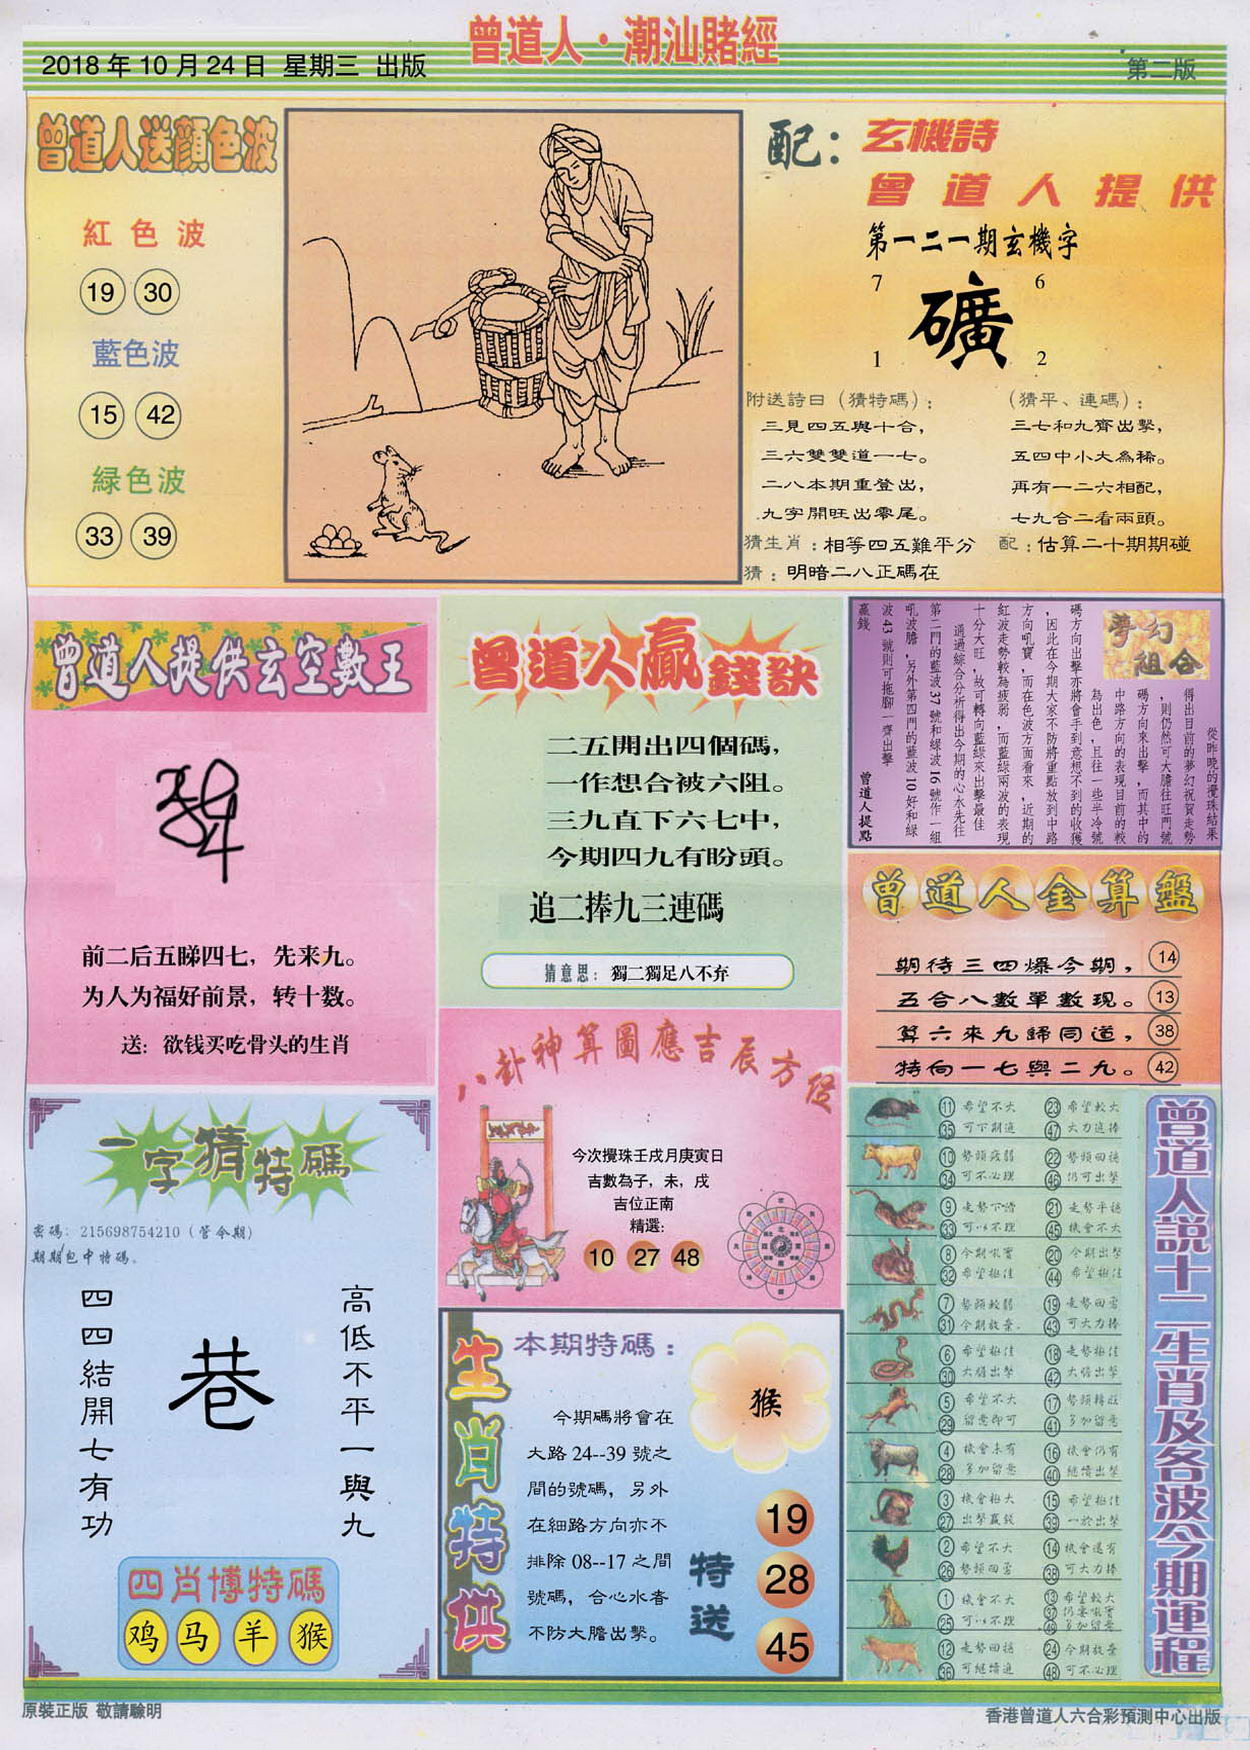 曾道人·潮汕賭經
2018年10月24日 星期三 出版
第二版
曾道人送顏色波
紅色波
19 30
藍色波
15 42
緑色波
33 39
配：玄機詩
曾道人提供
第一二一期玄機字
7 6
礦
1 2
附送詩曰（猜特碼）：
三見四五與十合，
三六雙雙道一七。
二八本期重登出，
九字開旺出零尾。
（猜平、連碼）：
三七和九齊出擊，
五四中小大為稀。
再有一二六相配，
七九合二看兩頭。
猜生肖：相等四五難平分
配：估算二十期期碰
猜：明暗二八正碼在
曾道人提供玄空數王
前二后五睇四七，先来九。
为人为福好前景，转十数。
送：欲钱买吃骨头的生肖
曾道人贏錢訣
二五開出四個碼，
一作想合被六阻。
三九直下六七中，
今期四九有盼頭。
追二捧九三連碼
猜意思：獨二獨足八不弃
夢幻組合
從昨晚的攪珠結果
得出目前的夢幻祝賀走勢
，則仍然可大膽往旺門號
碼方向來出擊，而其中的
中路方向的表現目前的較
為出色，且往一些半冷號
碼方向出擊亦將會手到意想不到的收獲
，因此在今期大家不防將重點放到中路
方向吼寶，而在色波方面看來，近期的
紅波走勢較為疲弱，而藍綠兩波的表現
十分大旺，故可轉向藍綠來出擊最佳
通過綜合分析得出今期的心水先往
第二門的藍波37號和綠波16號作一組
吼波膽，另外第四門的藍波10好和綠
波43號則可拖腳一齊出擊
贏錢
曾道人提點
曾道人金算盤
期待三四爆今期，14
五合八數單數現。13
算六來九歸同道，38
特向一七與二九。42
一字猜特碼
密碼：215698754210（管今期）
期期包中特碼。
高低不平一與九
巷
四四結開七有功
四肖博特碼
鸡 马 羊 猴
八卦神算圖應吉辰方位
今次攪珠壬戌月庚寅日
吉數為子，未，戌
吉位正南
精選：
10 27 48
生肖特供
本期特碼：
猴
今期碼將會在
大路24--39號之
間的號碼，另外
在細路方向亦不
排除08--17之間
號碼，合心水者
不防大膽出擊。
特送
19
28
45
曾道人説十二生肖及各波今期運程
11 希望不大 23 希望較大
35 可下期追 47 大力追捧
10 勢頭疲弱 22 勢頭回穩
34 可不必理 46 仍可出擊
9 走勢下滑 21 走勢平穩
33 可以不理 45 機會不大
8 今期吼寶 20 今期出擊
32 希望極佳 44 希望極佳
7 勢頭較弱 19 走勢回勇
31 今期放棄 43 可大力捧
6 希望極佳 18 走勢極佳
30 大膽出擊 42 大膽出擊
5 希望不大 17 勢頭轉旺
29 留意即可 41 多加留意
4 機會未有 16 機會仍有
28 多加留意 40 繼續出擊
3 機會極大 15 希望極佳
27 出擊贏錢 39 一於出擊
2 希望不大 14 機會還有
26 勢頭回勇 38 可大力捧
1 機會不大 13 希望較大
25 可以不理 37 仍要吼寶
49 多加留意
12 走勢回穩 24 今期放棄
36 可繼續追 48 可不必理
原裝正版 敬請驗明
香港曾道人六合彩預測中心出版